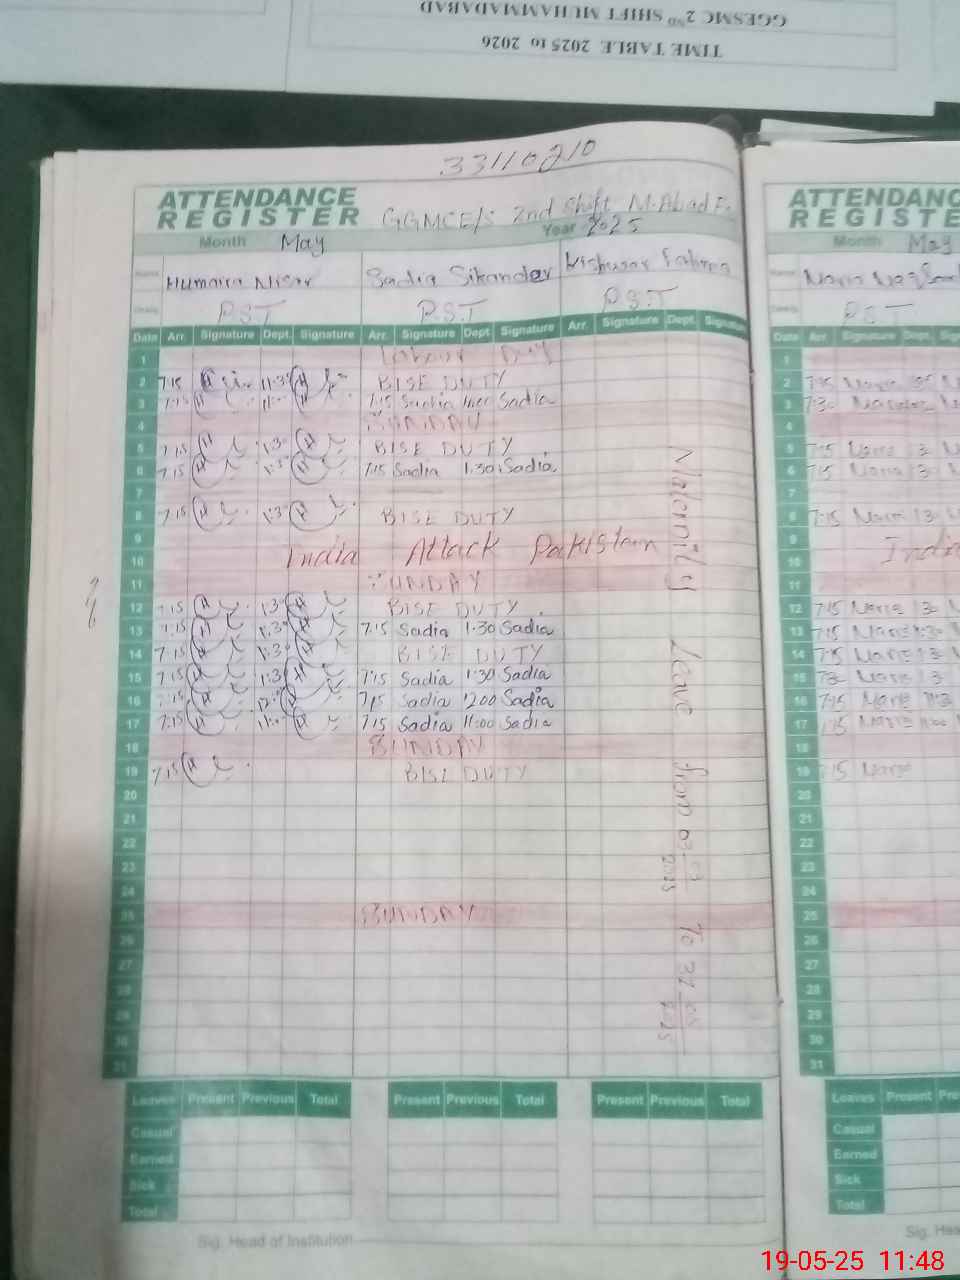 TIME TABLE 2025 to 2026
GGESMC 2ND SHIFT MUHAMMADABAD
33110210
ATTENDANCE REGISTER GGMCE/S 2nd Shift M.Abad F.
Month May Year 2025
Name Humaira Nisar Sadia Sikander Fatima
P.S.T P.S.T P.S.T
Date Arr. Signature Dept. Signature Arr. Signature Dept. Signature Arr. Signature Dept. Signature
1 Labour Day
2 7:15 11:30 BISE DUTY
3 7:15 11:00 7:15 Sadia 11:00 Sadia
4 SUNDAY
5 7:15 1:30 BISE DUTY
6 7:15 1:30 7:15 Sadia 1:30 Sadia
7
8 7:15 1:30 BISE DUTY
9
10 India Attack Pakistan
11 SUNDAY
12 7:15 1:30 BISE DUTY
13 7:15 1:30 7:15 Sadia 1:30 Sadia
14 7:15 1:30 BISE DUTY
15 7:15 1:30 7:15 Sadia 1:30 Sadia
16 7:15 12:00 7:15 Sadia 12:00 Sadia
17 7:15 11:00 7:15 Sadia 11:00 Sadia
18 SUNDAY
19 7:15 BISE DUTY
20
21
22
23
24
25 SUNDAY
26
27
28
29
30
31
Maternity Leave from 03 2025 To 31 05 2025
Leaves Present Previous Total Present Previous Total Present Previous Total
Casual
Earned
Sick
Total
Sig. Head of Institution
ATTENDANC
REGISTE
Month May
Name
P.S.T
Date Arr. Signature
1
2 7:15
3 7:30
4
5 7:15
6 7:15
7
8 7:15
9
10 India
11
12 7:15
13 7:15
14 7:15
15
16 7:15
17 7:15
18
19 7:15
20
21
22
23
24
25
26
27
28
29
30
31
Leaves Present Pre
Casual
Earned
Sick
Total
Sig. Hea
19-05-25 11:48